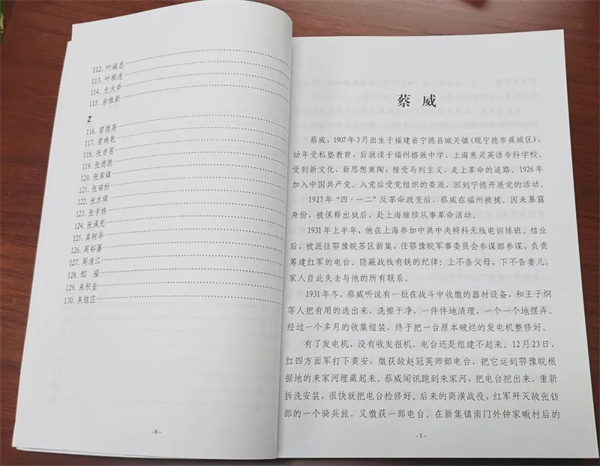 112. 叶诚忠
113. 叶顺通
114. 尤大芬
115. 余雅新
Z
116. 曾德英
117. 曾焕乾
118. 张步男
119. 张德胜
120. 张家镇
121. 张瑞杉
122. 张水锦
123. 张学栋
124. 张漢彪
125. 郑树华
126. 周裕藩
127. 周清江
128. 邹福
129. 朱积垒
130. 朱铭庄
- 6 -
蔡 威
蔡威,1907年3月出生于福建省宁德县城关镇(现宁德市蕉城区),
幼年受私塾教育,后就读于福州格致中学、上海惠灵英语专科学校,
受到新文化、新思想熏陶,接受马列主义,走上革命的道路。1926年
加入中国共产党。入党后受党组织的委派,回到宁德开展党的活动。
1927年“四·一二”反革命政变后,蔡威在福州被捕。因未暴露
身份,被保释出狱后,赴上海继续从事革命活动。
1931年上半年,他在上海参加中共中央特科无线电训练班。结业
后,被派往鄂豫皖苏区新集,任鄂豫皖军事委员会参谋部参谋,负责
筹建红军的电台。隐蔽战线有铁的纪律:上不告父母,下不告妻儿。
家人自此失去与他的所有联系。
1931年冬,蔡威听说有一批在战斗中收缴的器材设备,和王子纲
等人把有用的选出来,洗擦干净,一件件地清理,一个一个地摆弄。
经过一个多月的收集组装,终于把一台原本破烂的发电机整修好。
有了发电机,没有收发报机,电台还是组建不起来。12月23日,
红四方面军打下黄安,缴获敌赵冠英师部电台,把它运到鄂豫皖根
据地的来家河埋藏起来。蔡威闻讯跑到来家河,把电台挖出来,重新
拆洗安装,很快就把电台检修好。后来的商潢战役,红军歼灭敌张钫
部的一个骑兵旅,又缴获一部电台。在新集镇南门外钟家畈村后的
- 1 -